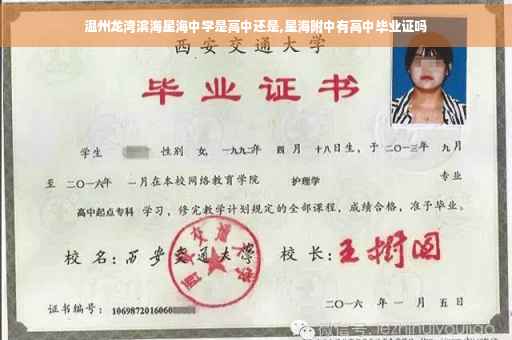 温州龙湾滨海星海中学是高中还是,星海附中有高中毕业证吗
西安交通大学
毕业证书
学生 性别 女, 一九九二年 四月 十八日生, 于 二〇一三年 九月
至 二〇一六年 一月在本校网络教育学院 护理学 专业
高中起点专科 学习, 修完教学计划规定的全部课程, 成绩合格, 准予毕业。
校 名: 西安交通大学 校 长: 王树国
证书编号: 1069872016060
二〇一六 年 一 月 五 日